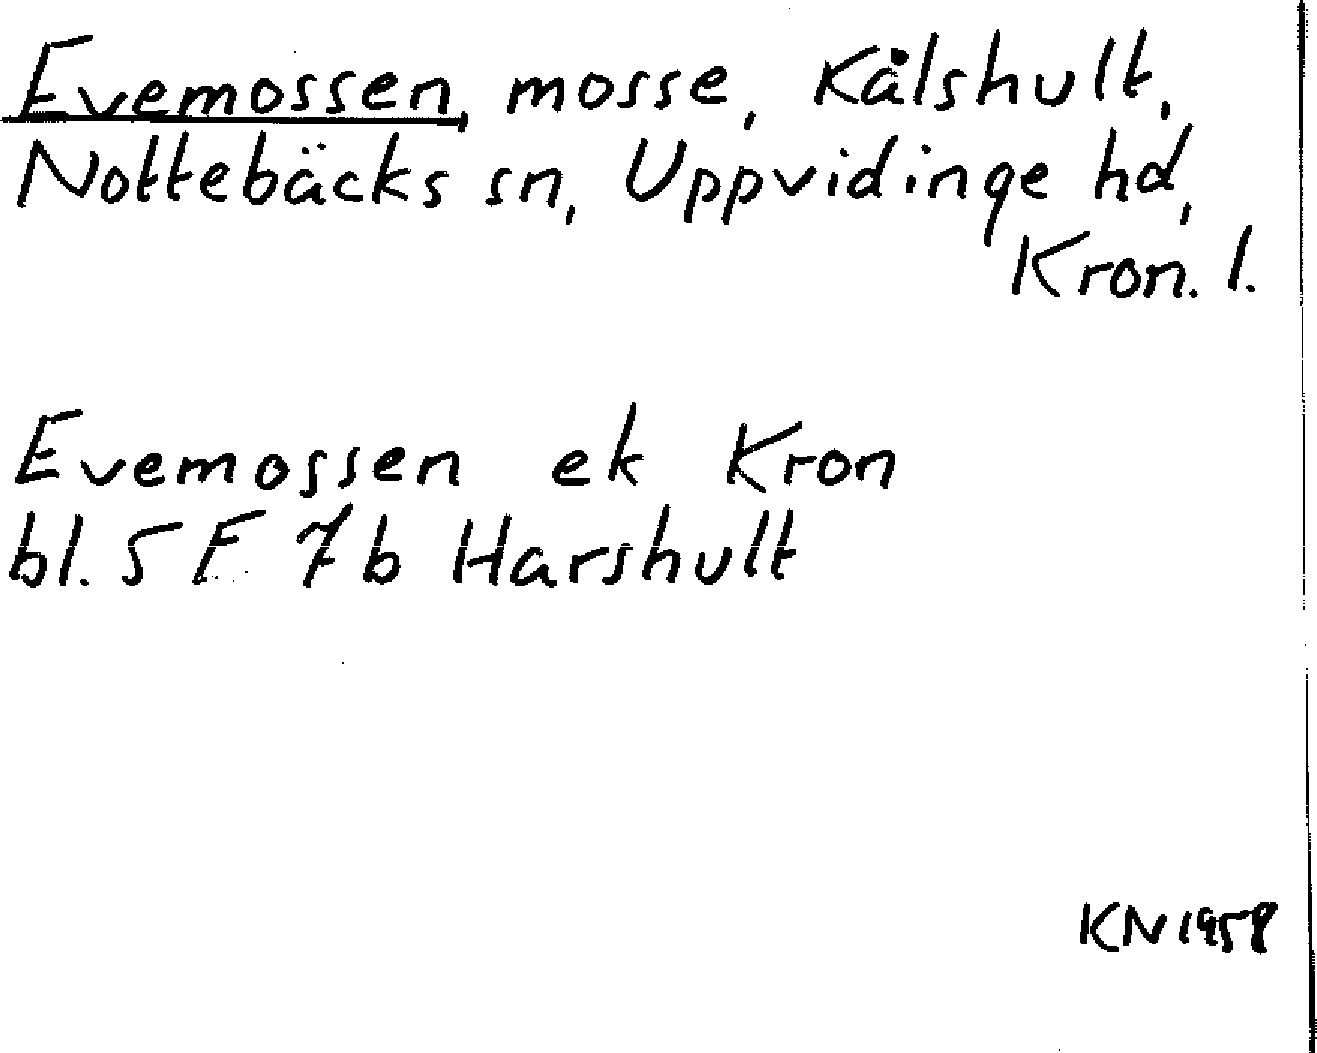 Evemossen, mosse, Kålshult,
Nottebäcks sn, Uppvidinge hd,
Kron. l.
Evemossen ek Kron
bl. 5 F 7b Harshult
KN 1958